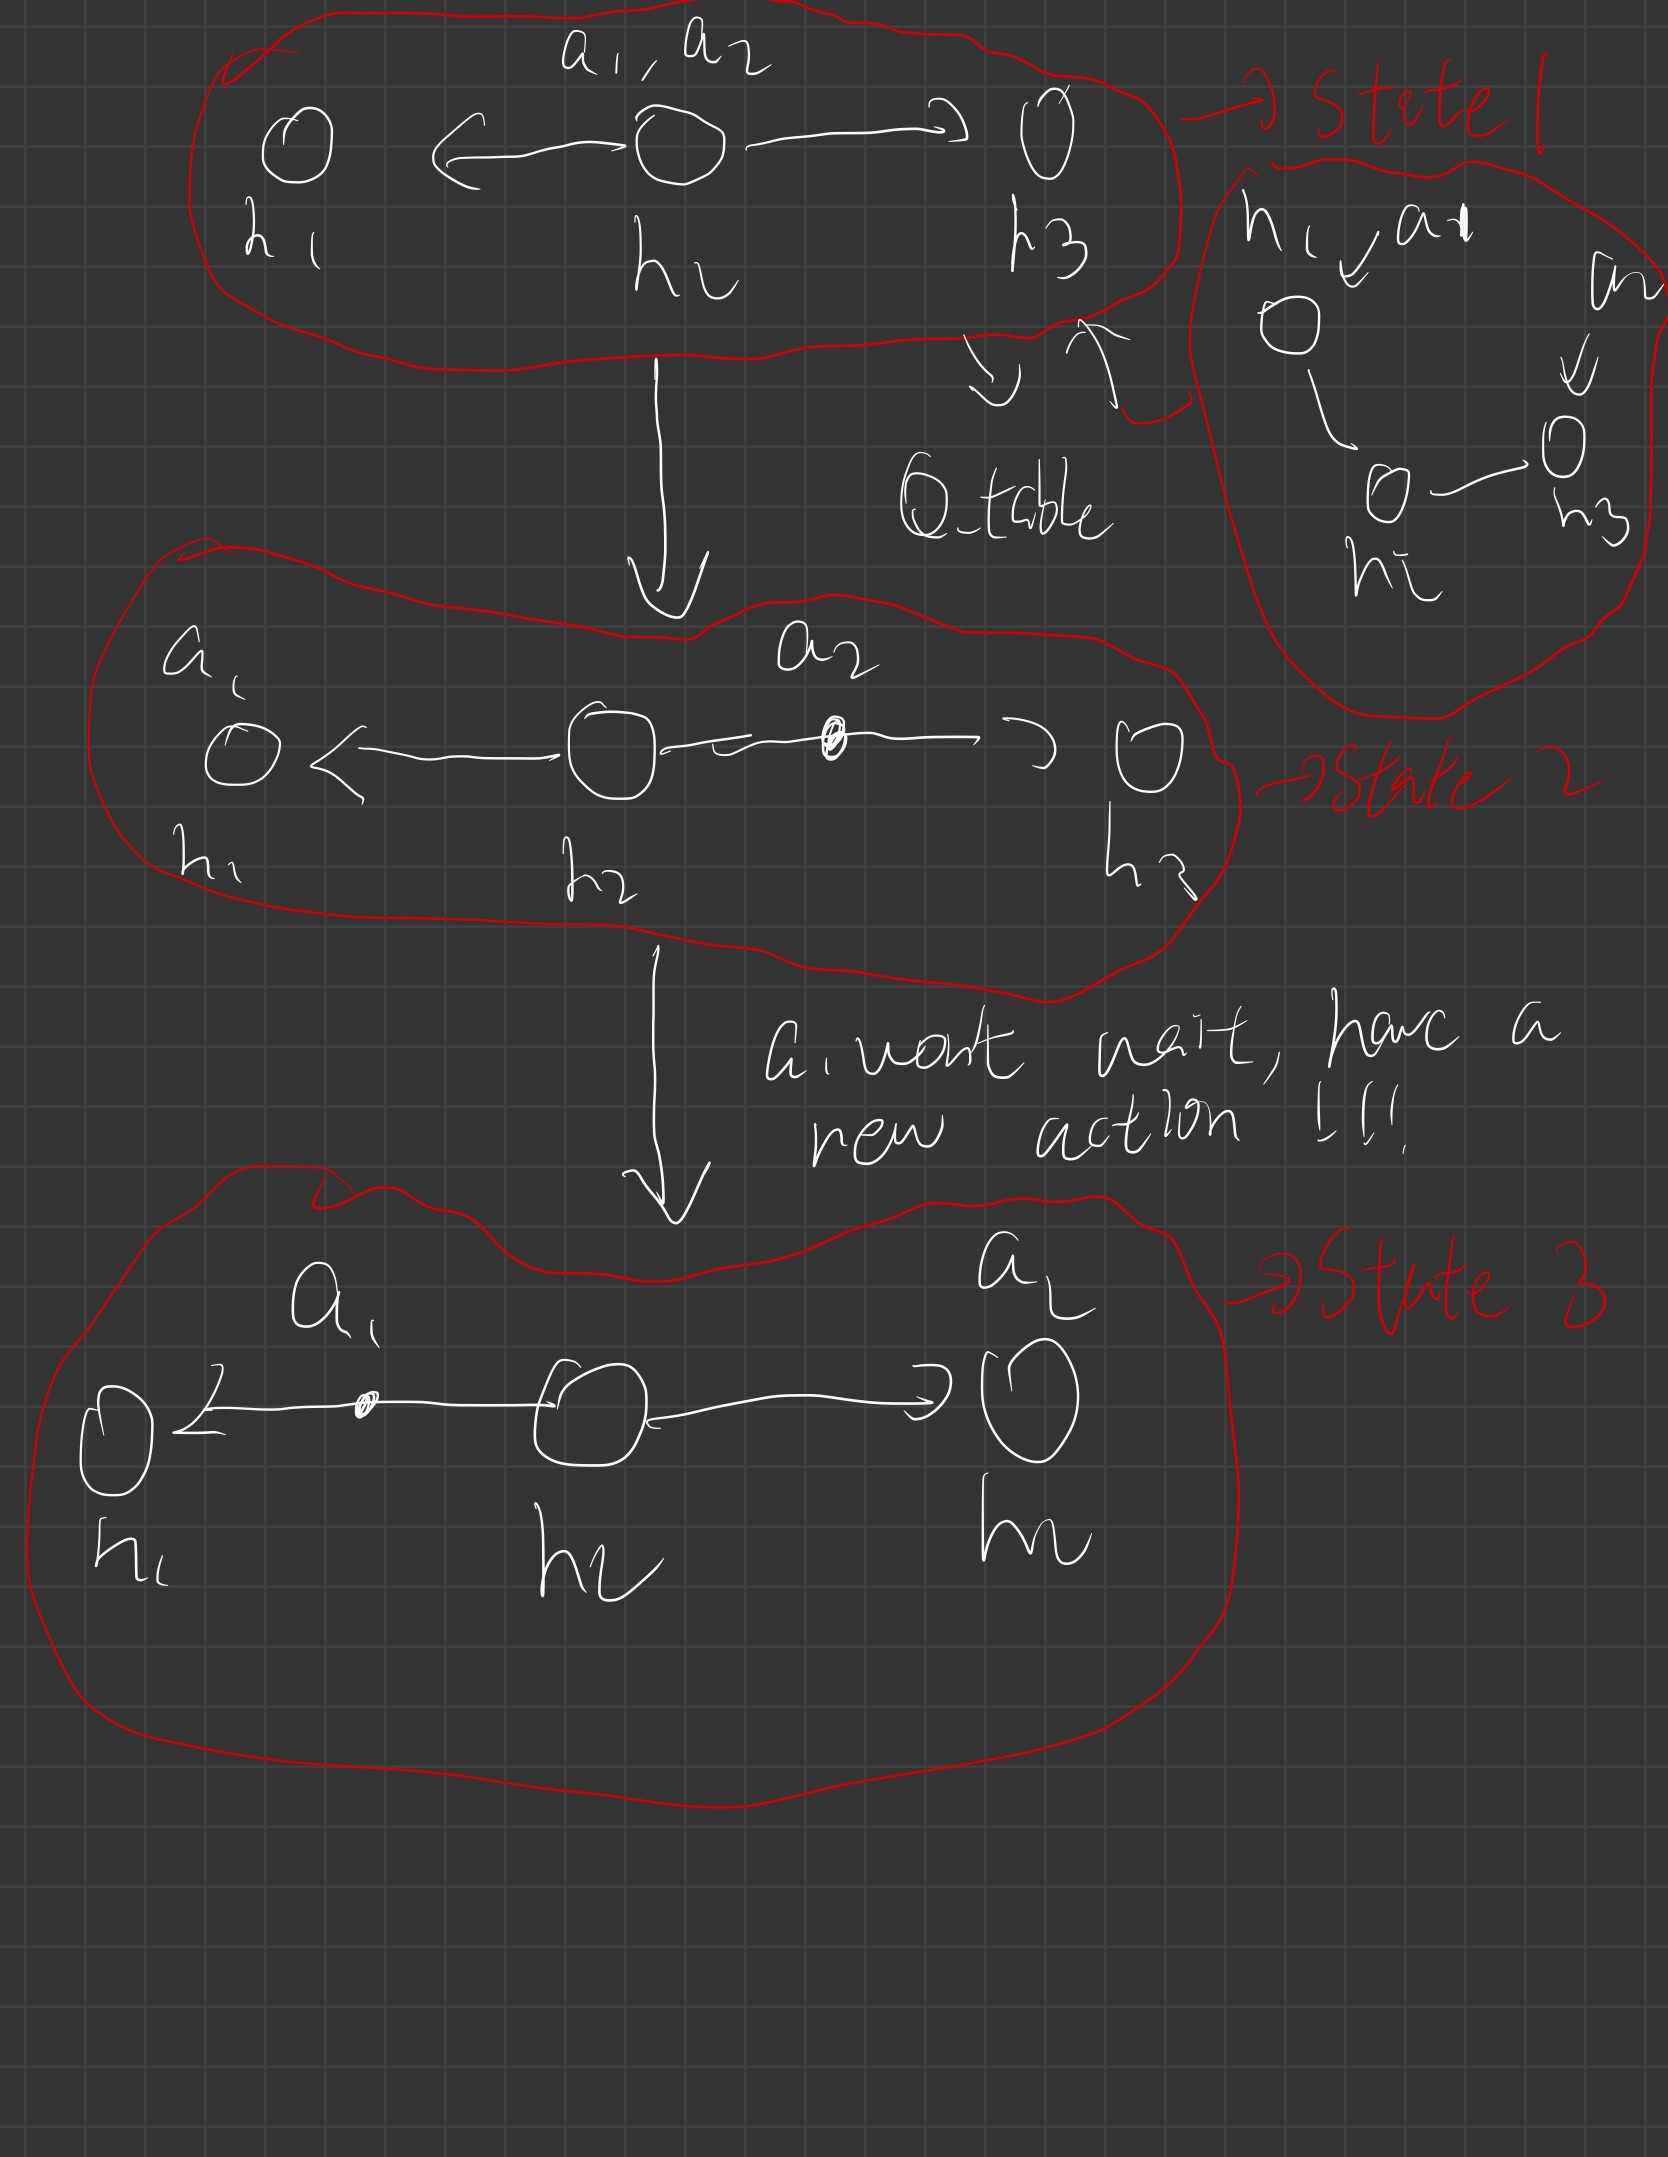 a1, a2
h1 h2 h3
→ State 1
h1, a1
a2
h3
h2
Q_table
a1
a2
h1 h2 h3
→ State 2
a1 wont wait, have a
new action !!!
a1
a2
h1 h2
→ State 3